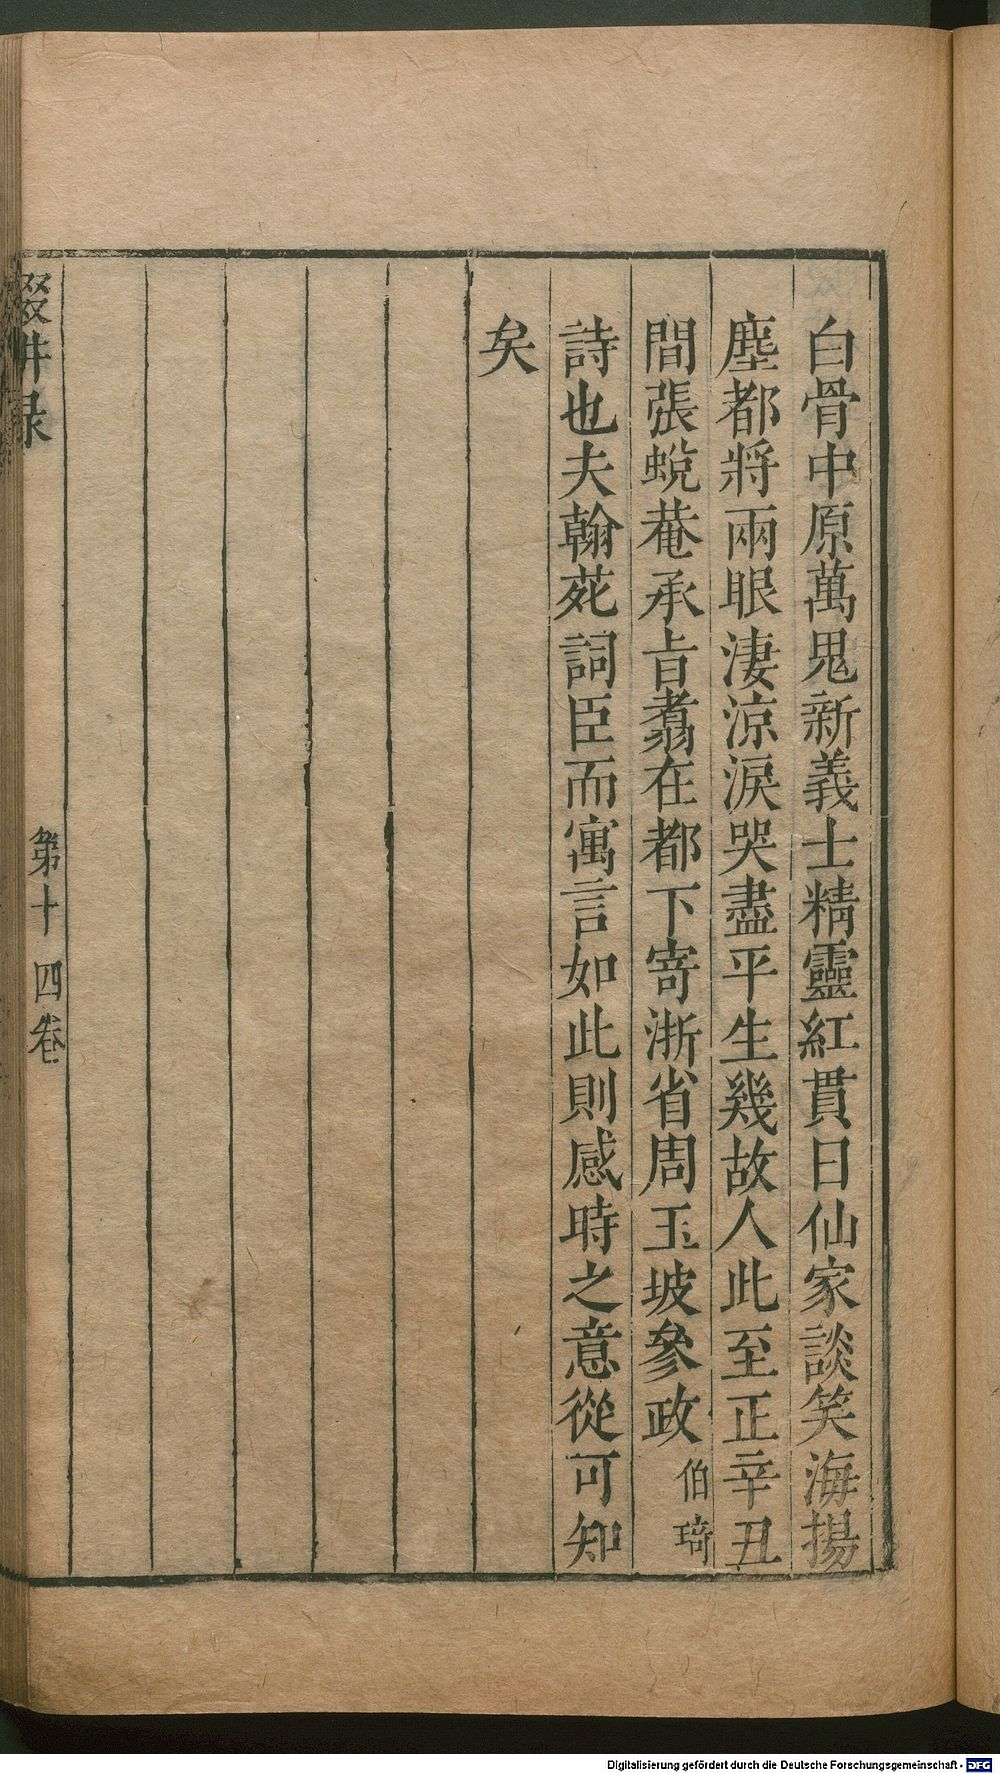 白骨中原萬鬼新義士精靈紅貫日仙家談笑海揚
塵都將兩眼淒涼淚哭盡平生幾故人此至正辛丑
間張蛻菴承旨翥在都下寄浙省周玉坡參政伯琦
詩也夫翰苑詞臣而寓言如此則感時之意從可知
矣
輟耕录
第十四卷
Digitalisierung gefördert durch die Deutsche Forschungsgemeinschaft - DFG